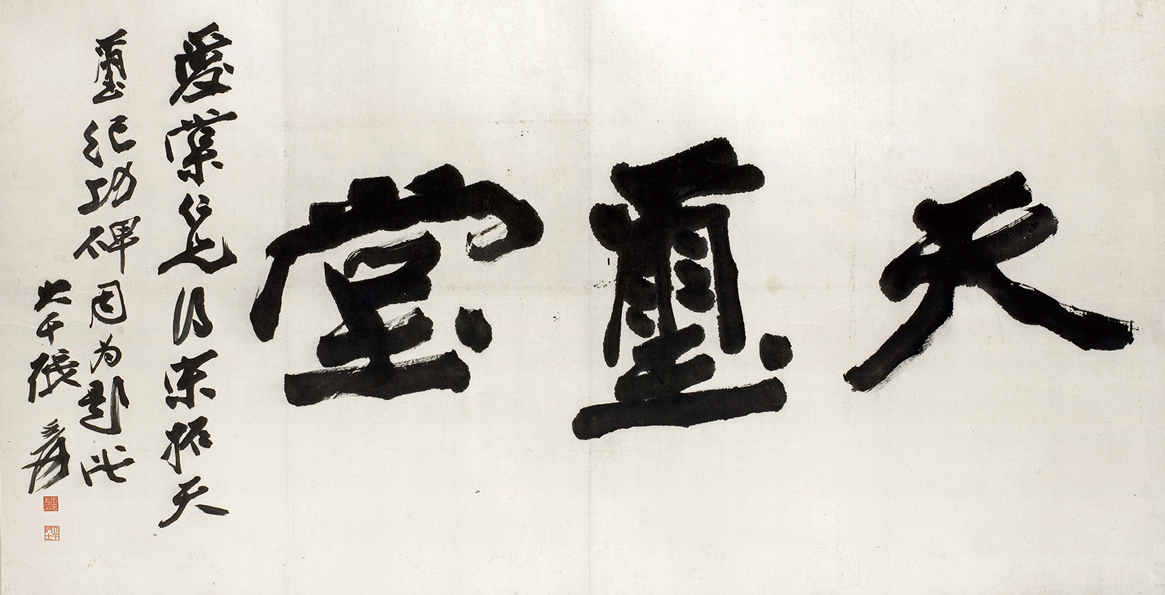 天璽堂
愛棠仁兄得宋拓天
璽紀功碑因為題此
大千張爰